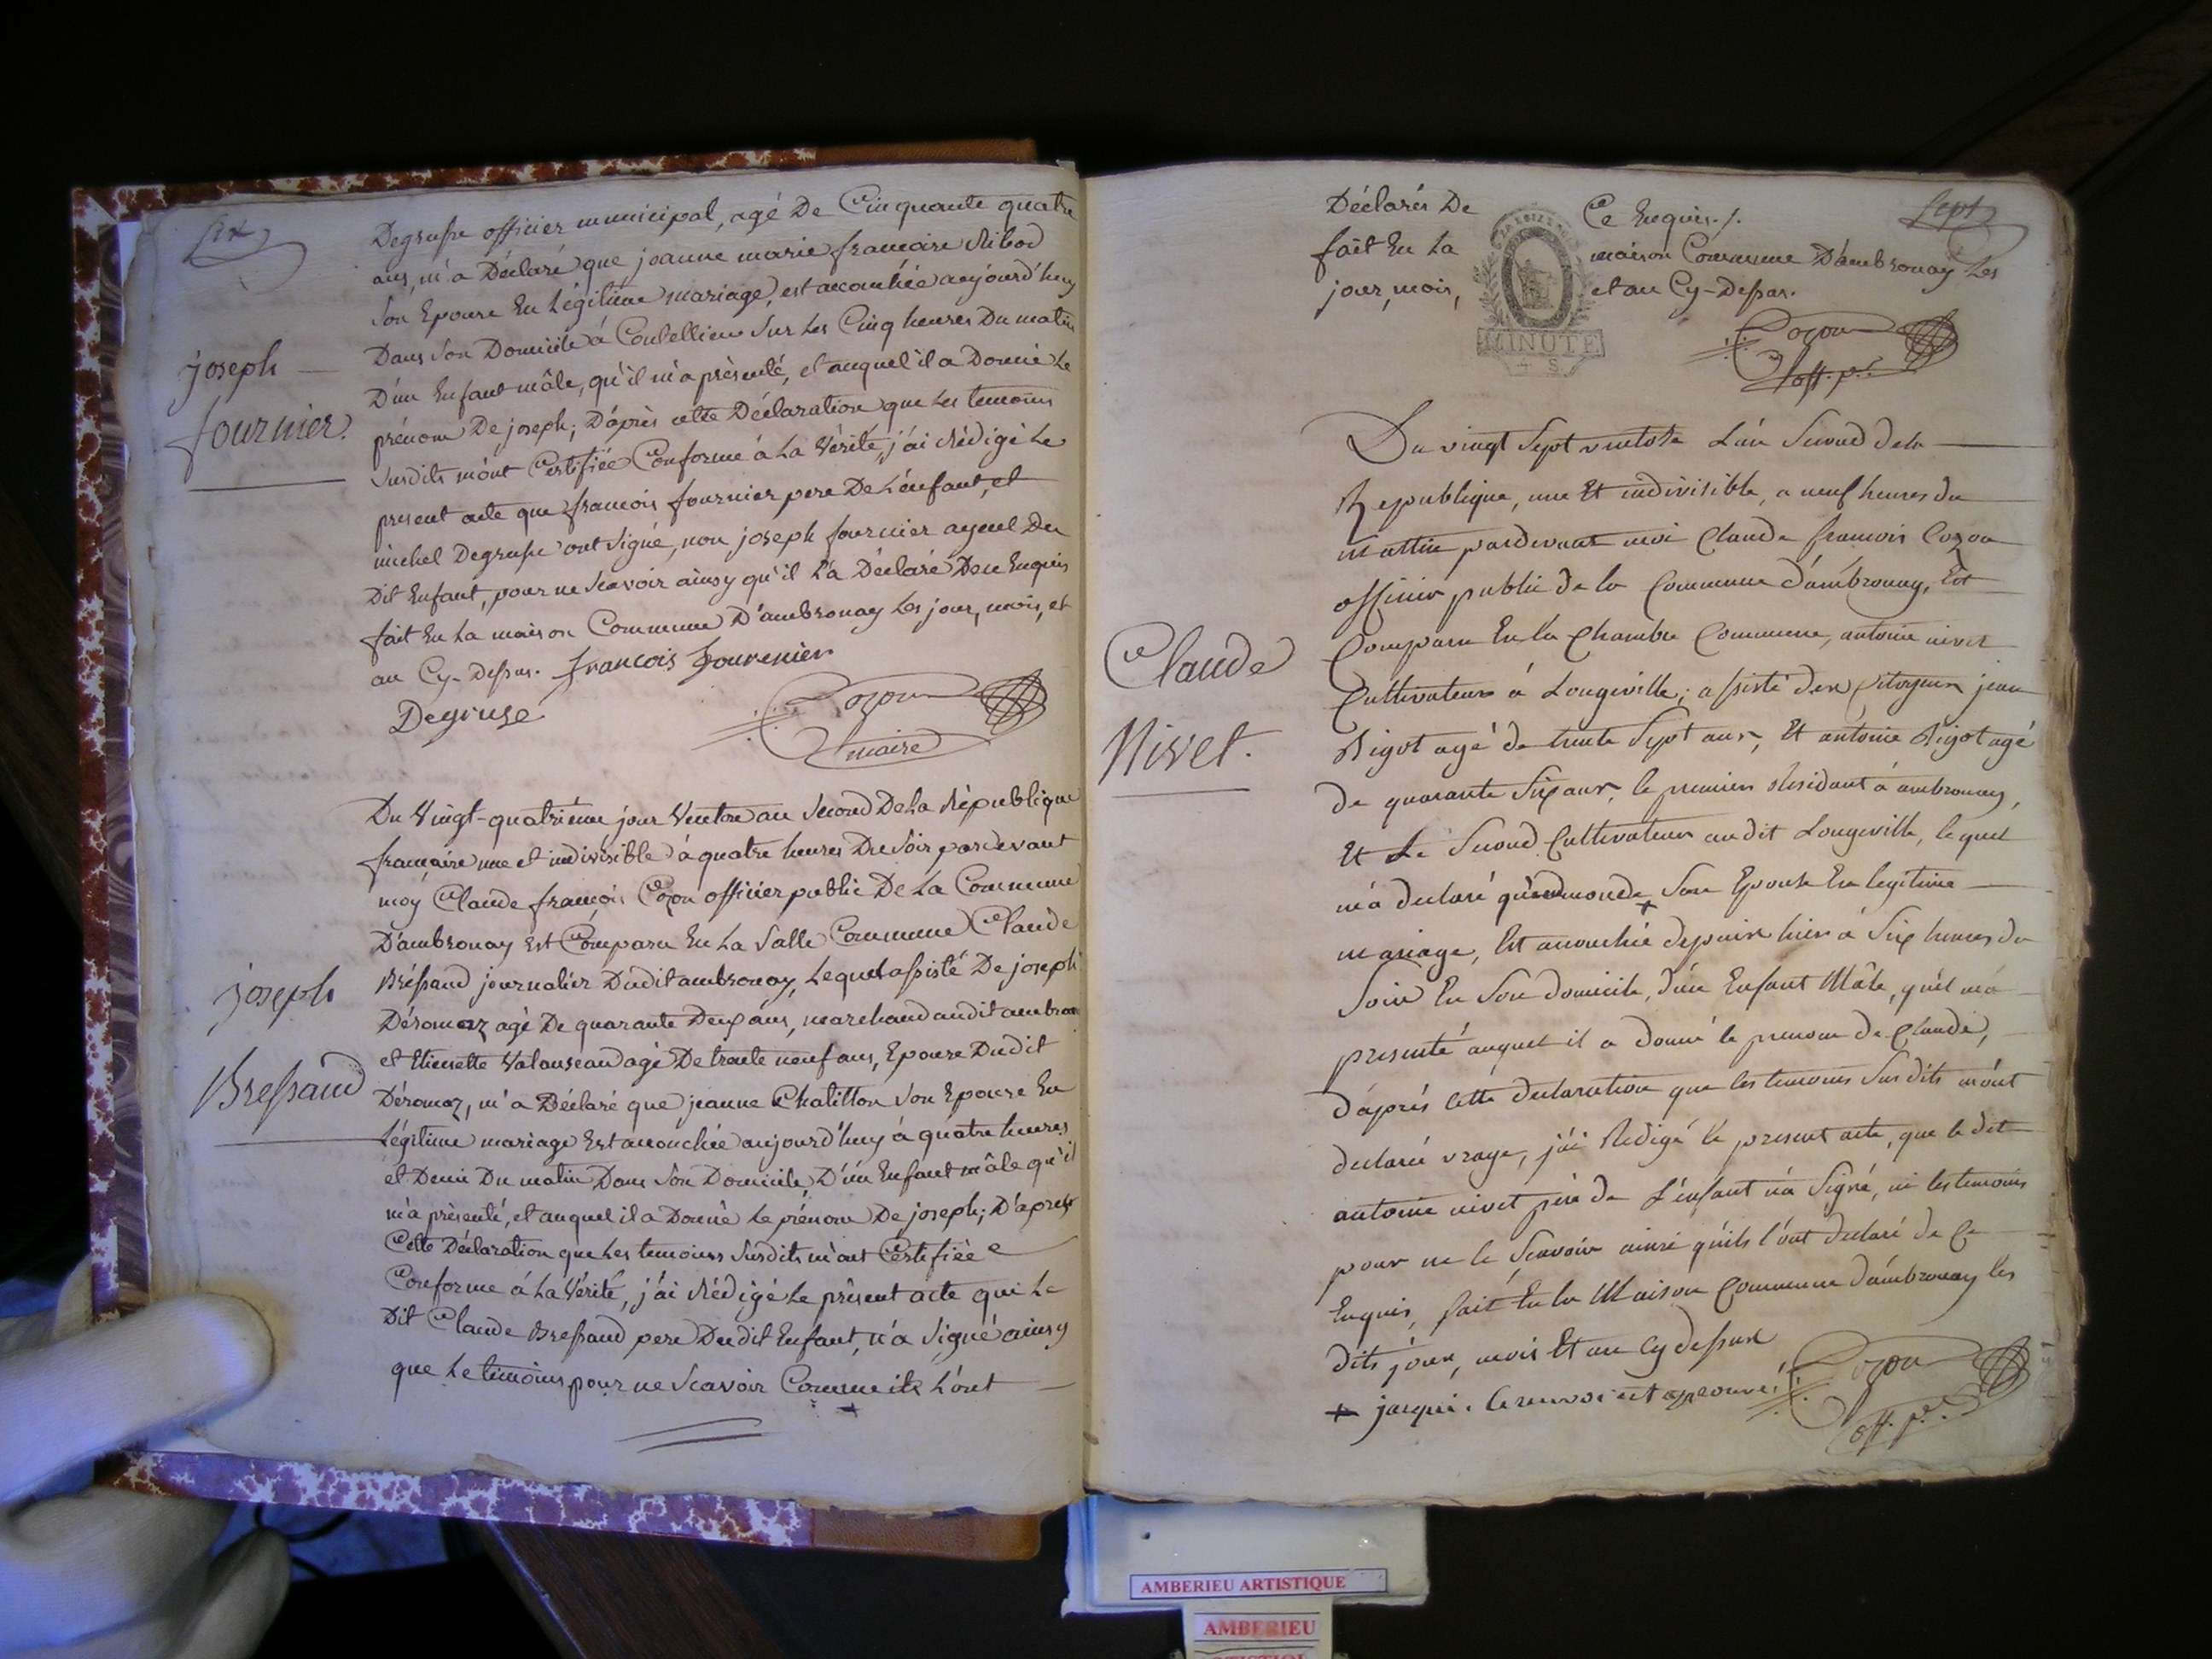 Six
Degrusse officier municipal, agé De Cinquante quatre
ans, m'a Déclaré que jeanne marie francoise Ribod
Son Epouse En Légitime mariage, est accouchée aujourd'huy
Dans Son Domicile à Coutellieu Sur Les Cinq heures Du matin
D'un Enfant mâle, qu'il m'a présenté, et auquel il a Donné Le
prénom De joseph; D'après cette Déclaration que Les temoins
Susdits m'ont Certifiée Conforme à La Vérité, j'ai Rédigé Le
present acte que francois fournier pere De L'enfant, et
michel Degrusse ont Signé, non joseph fournier ayeul Du
Dit Enfant, pour ne Scavoir ainsy qu'il L'a Déclaré De ce Enquis
fait En La maison Commune D'ambronay Les jour, mois, et
an Cy-Dessus. francois fournier
Degruse
Cozon
maire
joseph
fournier.
Du Vingt-quatrième jour Ventose an Second De La République
française une et indivisible à quatre heures Du Soir pardevant
moy Claude françois Cozon officier public De La Commune
D'ambronay Est Comparu En La Salle Commune Claude
Bressand journalier Dudit ambronay, Lequel assisté De joseph
Déromaz agé De quarante Deux ans, marchand audit ambronay
et Etienette Valanseaud agé De trente neuf ans, Epouse Dudit
Déromaz, m'a Déclaré que jeanne Chatitton Son Epouse En
Légitime mariage Est accouchée aujourd'huy à quatre heures
et Demi Du matin Dans Son Domicile D'un Enfant mâle qu'il
m'a présenté, et auquel il a Donné Le prénom De joseph; D'après
Cette Déclaration que Les temoins Susdits m'ont Certifiée
Conforme à La Vérité, j'ai Rédigé Le présent acte que Le
Dit Claude Bressand pere Dudit Enfant, n'a Signé ainsy
que Le temoins pour ne Scavoir Comme ils L'ont
joseph
Bressand
Sept
Déclarés De Ce Enquis./.
fait En La maison Commune D'ambronay Les
jour, mois, et an Cy-Dessus.
MINUTE
4 S
Cozon
off. p.c
Du vingt Sept ventose L'an Second de la
Republique, une Et indivisible, a neuf heures du
mattin pardevant moi Claude francois Cozon
officier public de la Commune d'ambronay, Est
Comparu En la Chambre Commune, antoine nivet
Cultivateur à Longeville; assisté des Citoyens jean
Bigot agé de trente Sept ans, Et antoine Bigot agé
de quarante Six ans, le premier Residant à ambronay,
Et Le Second Cultivateur au dit Longeville, lequel
m'a declaré qu'edmonde + Son Epouse En legitime
mariage, Est accouchée depuis hier à Six heures du
Soir En Son domicile, d'un Enfant Mâle, qu'il m'a
presenté auquel il a donné le prenom de Claude,
d'après Cette declaration que les temoins Susdits m'ont
declaré vraye, j'ai Redigé le present acte, que le dit
antoine nivet pere de L'enfant n'a Signé, ni les temoins
pour ne le Scavoir ainsi qu'ils l'ont declaré de Ce
Enquis, fait En la Maison Commune d'ambronay les
dits jour, mois Et an Cy dessus
+ jacqui. le renvoi est approuvé.
Cozon
off. p.c
Claude
Nivet.
AMBERIEU ARTISTIQUE
AMBERIEU